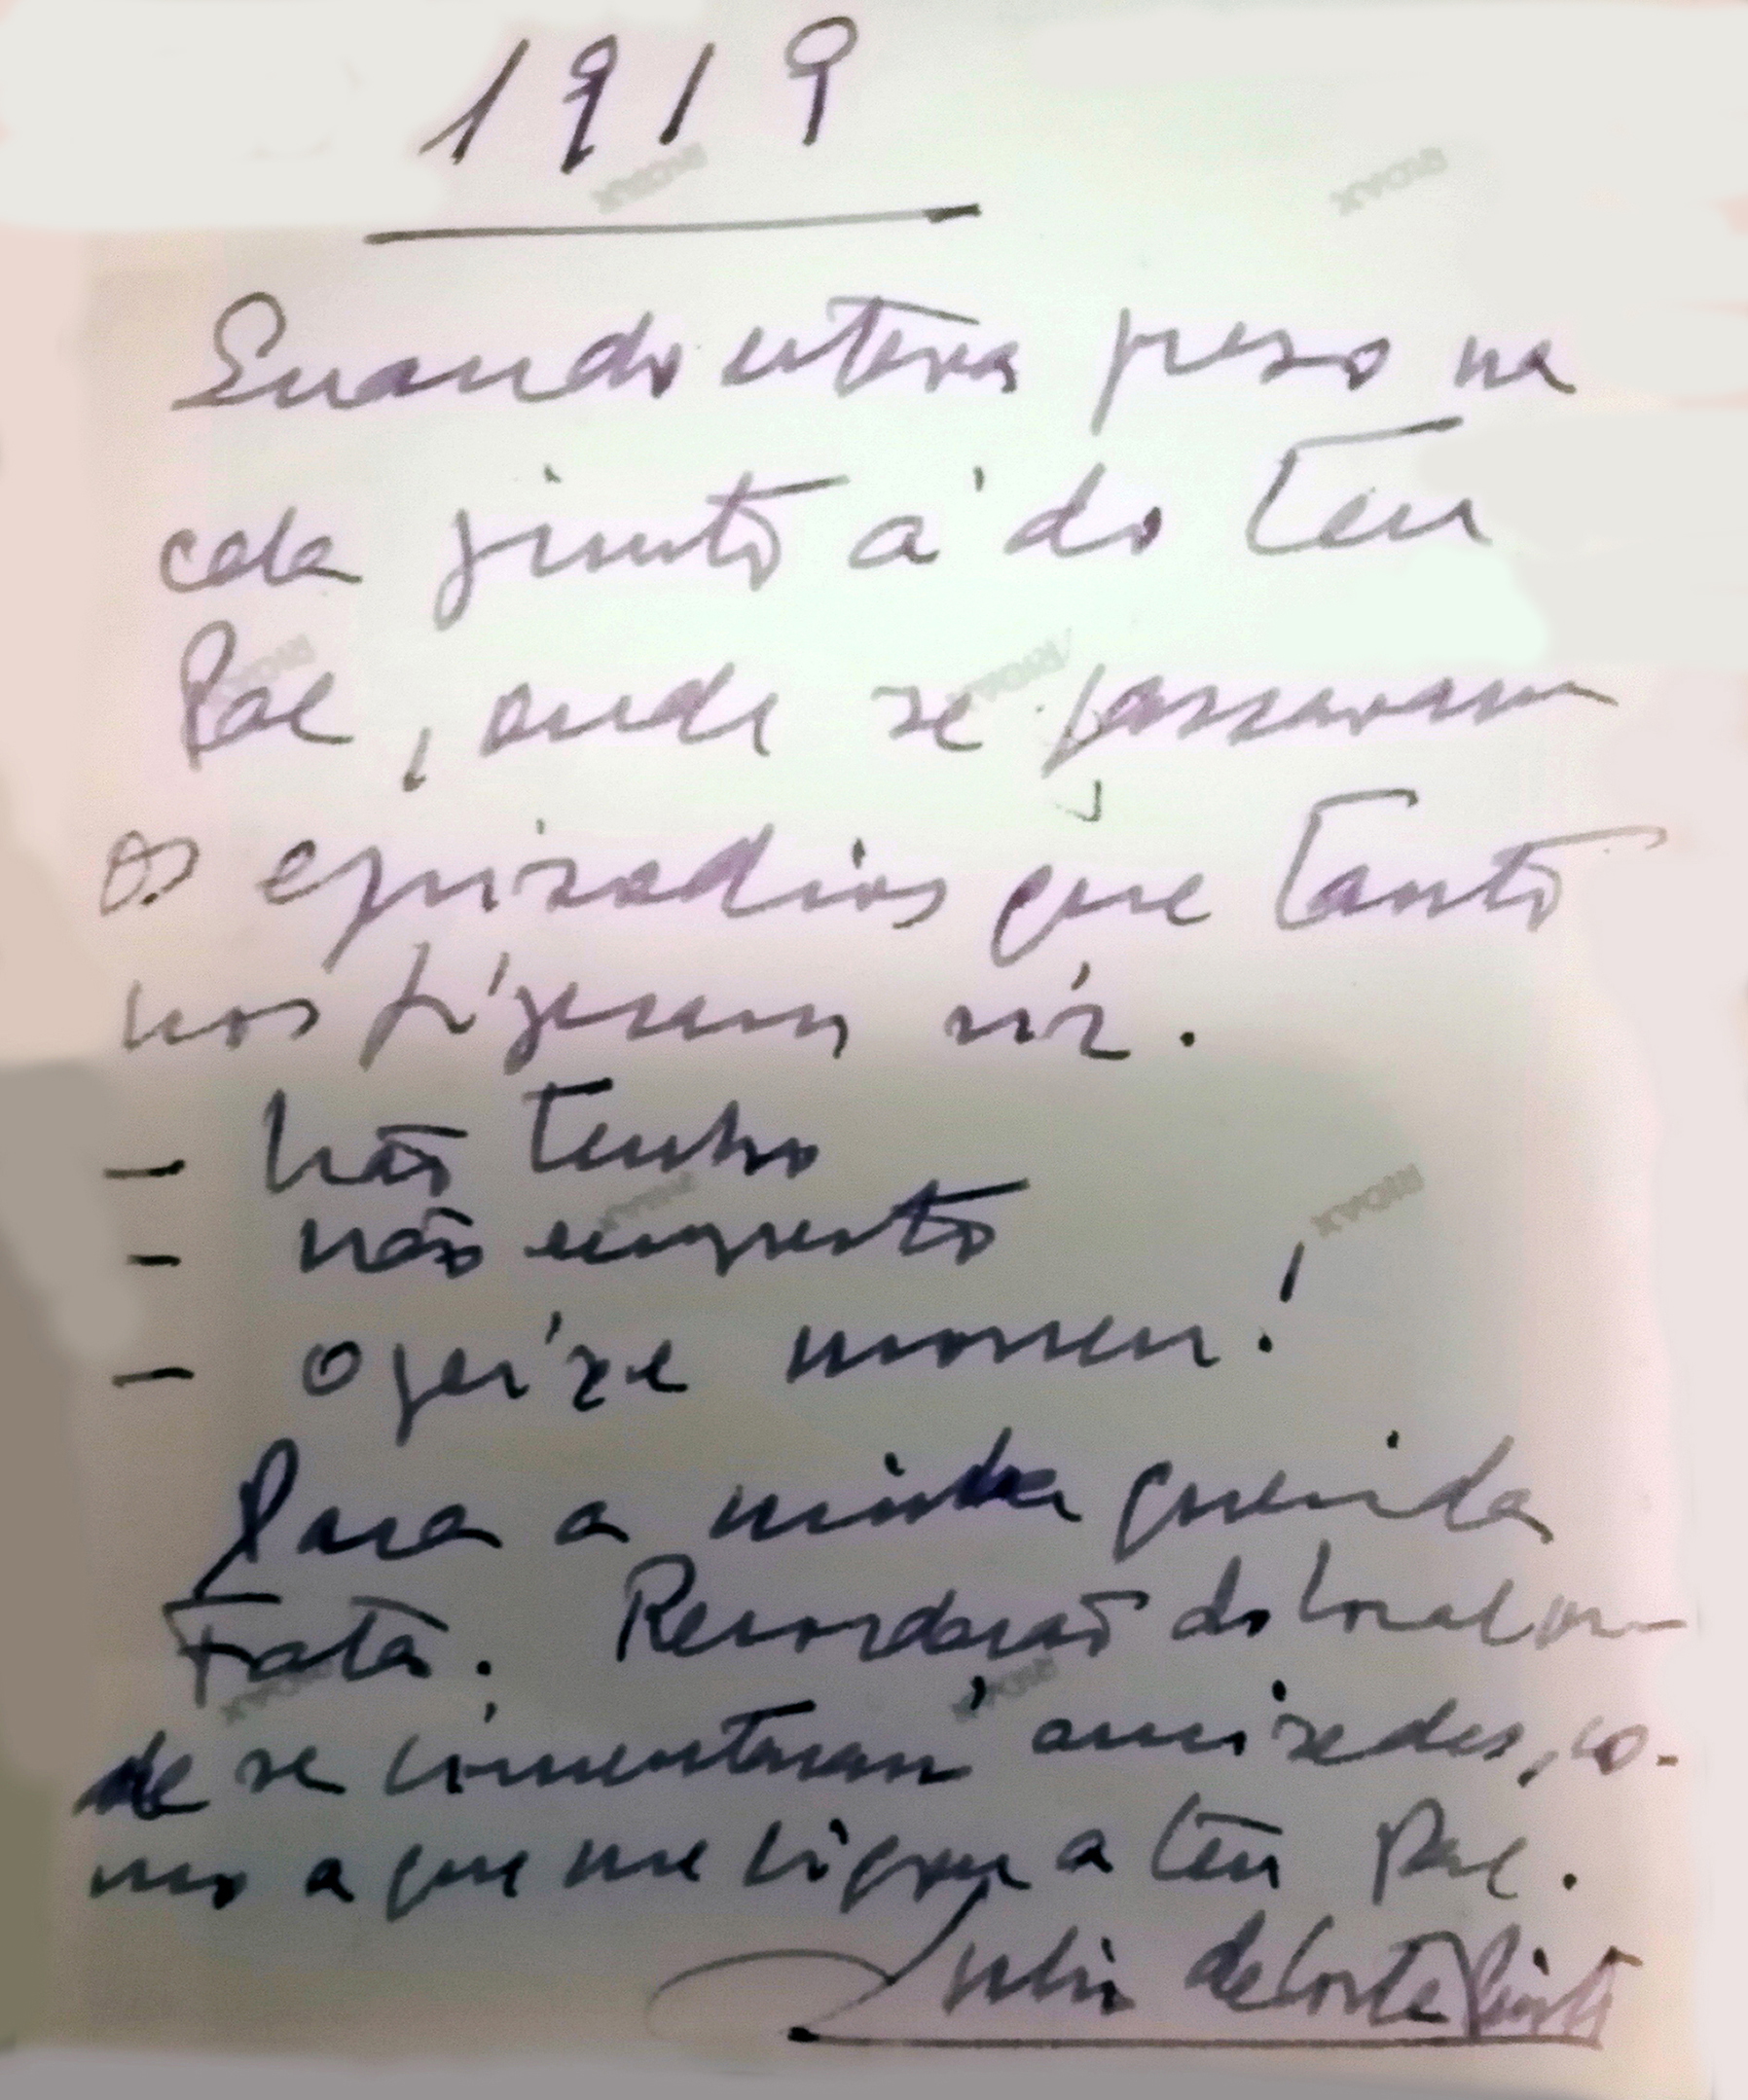 1919
Quando estava preso na
cela junto á do teu
Pae, onde se passaram
os episodios que tanto
nos fizeram rir.
- Não tenho
- não empresto
- o peixe morreu!
Para a minha querida
Tatá. Recordação do local on-
de se cimentaram amizades, co-
mo a que me ligou a teu Pae.
Julio de Corte Pinto
VELOX